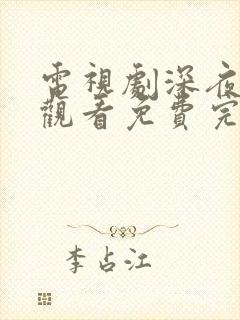 電視劇深夜
觀看免費完
李占江